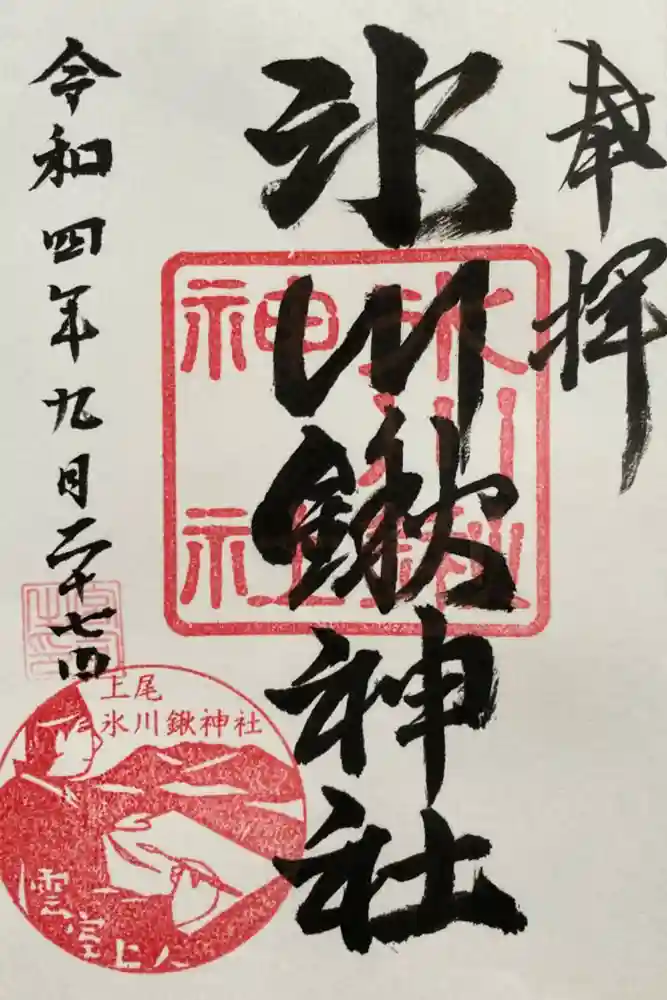 奉拝
氷川鍬神社
氷川鍬
神社
令和四年九月二十七日
上尾
氷川鍬神社
雲室上人